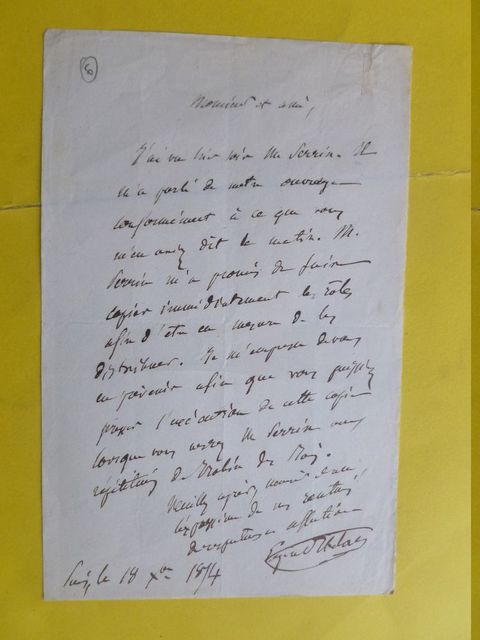 6
Monsieur et ami,
J'ai vu hier soir M. Perrin. Il
m'a parlé de notre ouvrage
conformément à ce que vous
m'en aviez dit le matin. M.
Perrin m'a promis de faire
copier immédiatement les rôles
afin d'être en mesure de les
distribuer. Je m'empresse de vous
en prévenir afin que vous puissiez
presser l'exécution de cette copie
lorsque vous verrez M. Perrin aux
répétitions de Robin des Bois.
Veuillez agréer, monsieur et ami,
l'expression de mes
affection
le 18 Xbre 1854